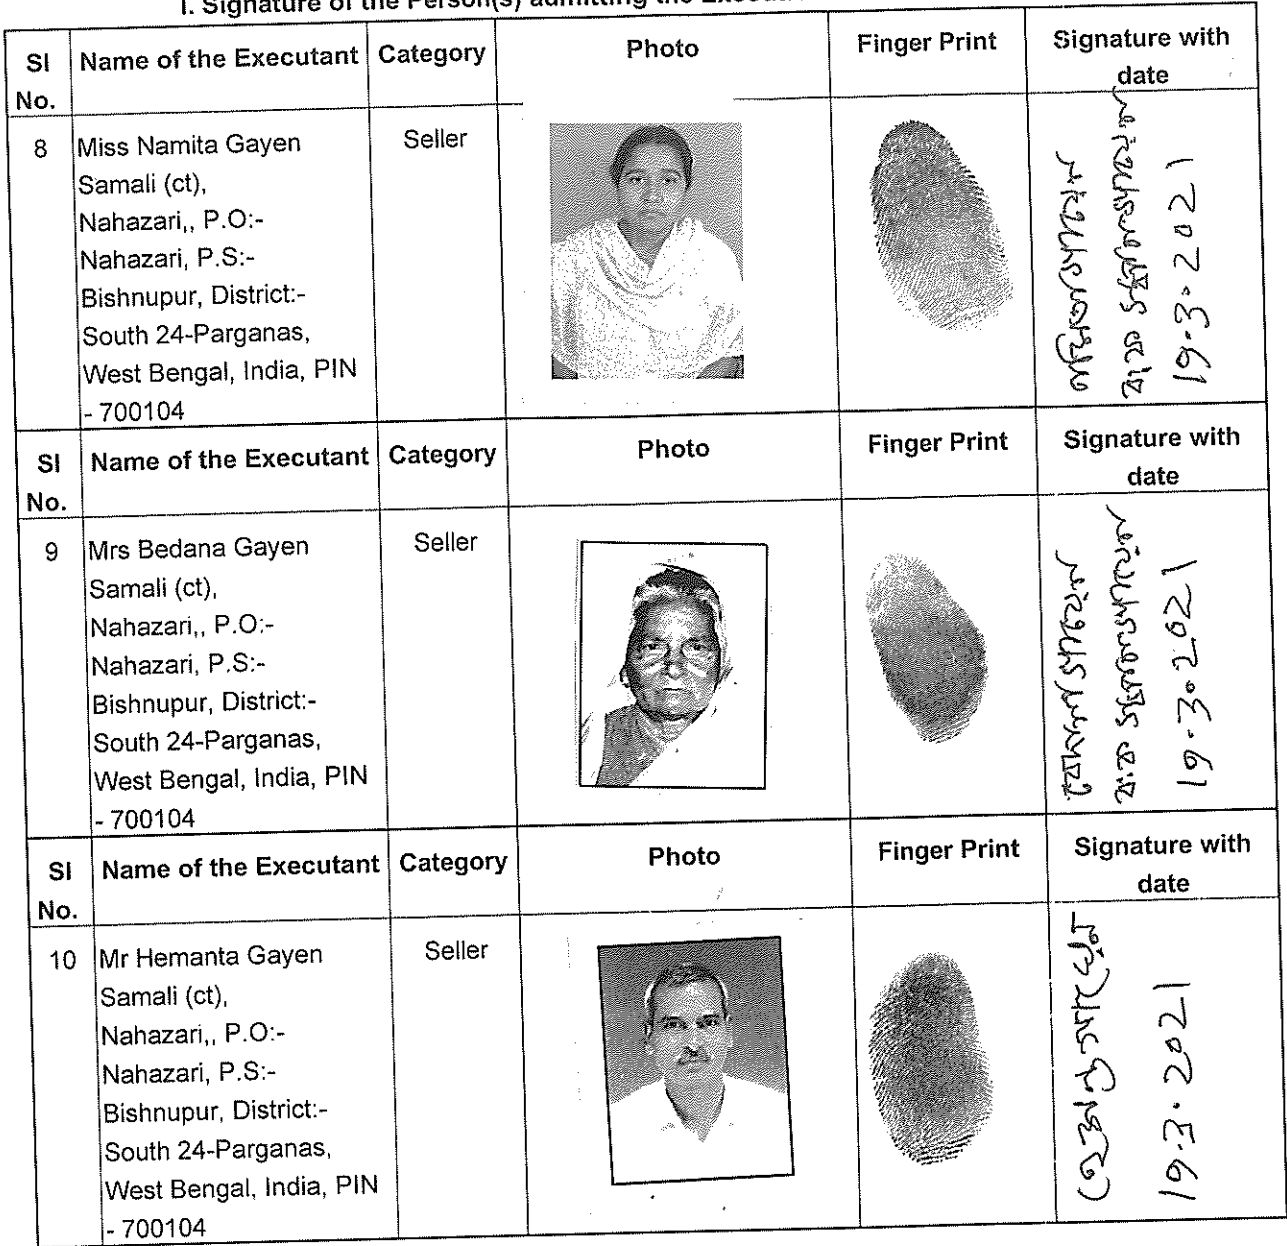 I. Signature of the Person(s) admitting the
Sl No. Name of the Executant Category Photo Finger Print Signature with date
8 Miss Namita Gayen Seller
Samali (ct),
Nahazari,, P.O:-
Nahazari, P.S:-
Bishnupur, District:-
South 24-Parganas,
West Bengal, India, PIN
- 700104
19.3.2021
Sl No. Name of the Executant Category Photo Finger Print Signature with date
9 Mrs Bedana Gayen Seller
Samali (ct),
Nahazari,, P.O:-
Nahazari, P.S:-
Bishnupur, District:-
South 24-Parganas,
West Bengal, India, PIN
- 700104
19.3.2021
Sl No. Name of the Executant Category Photo Finger Print Signature with date
10 Mr Hemanta Gayen Seller
Samali (ct),
Nahazari,, P.O:-
Nahazari, P.S:-
Bishnupur, District:-
South 24-Parganas,
West Bengal, India, PIN
- 700104
19.3.2021